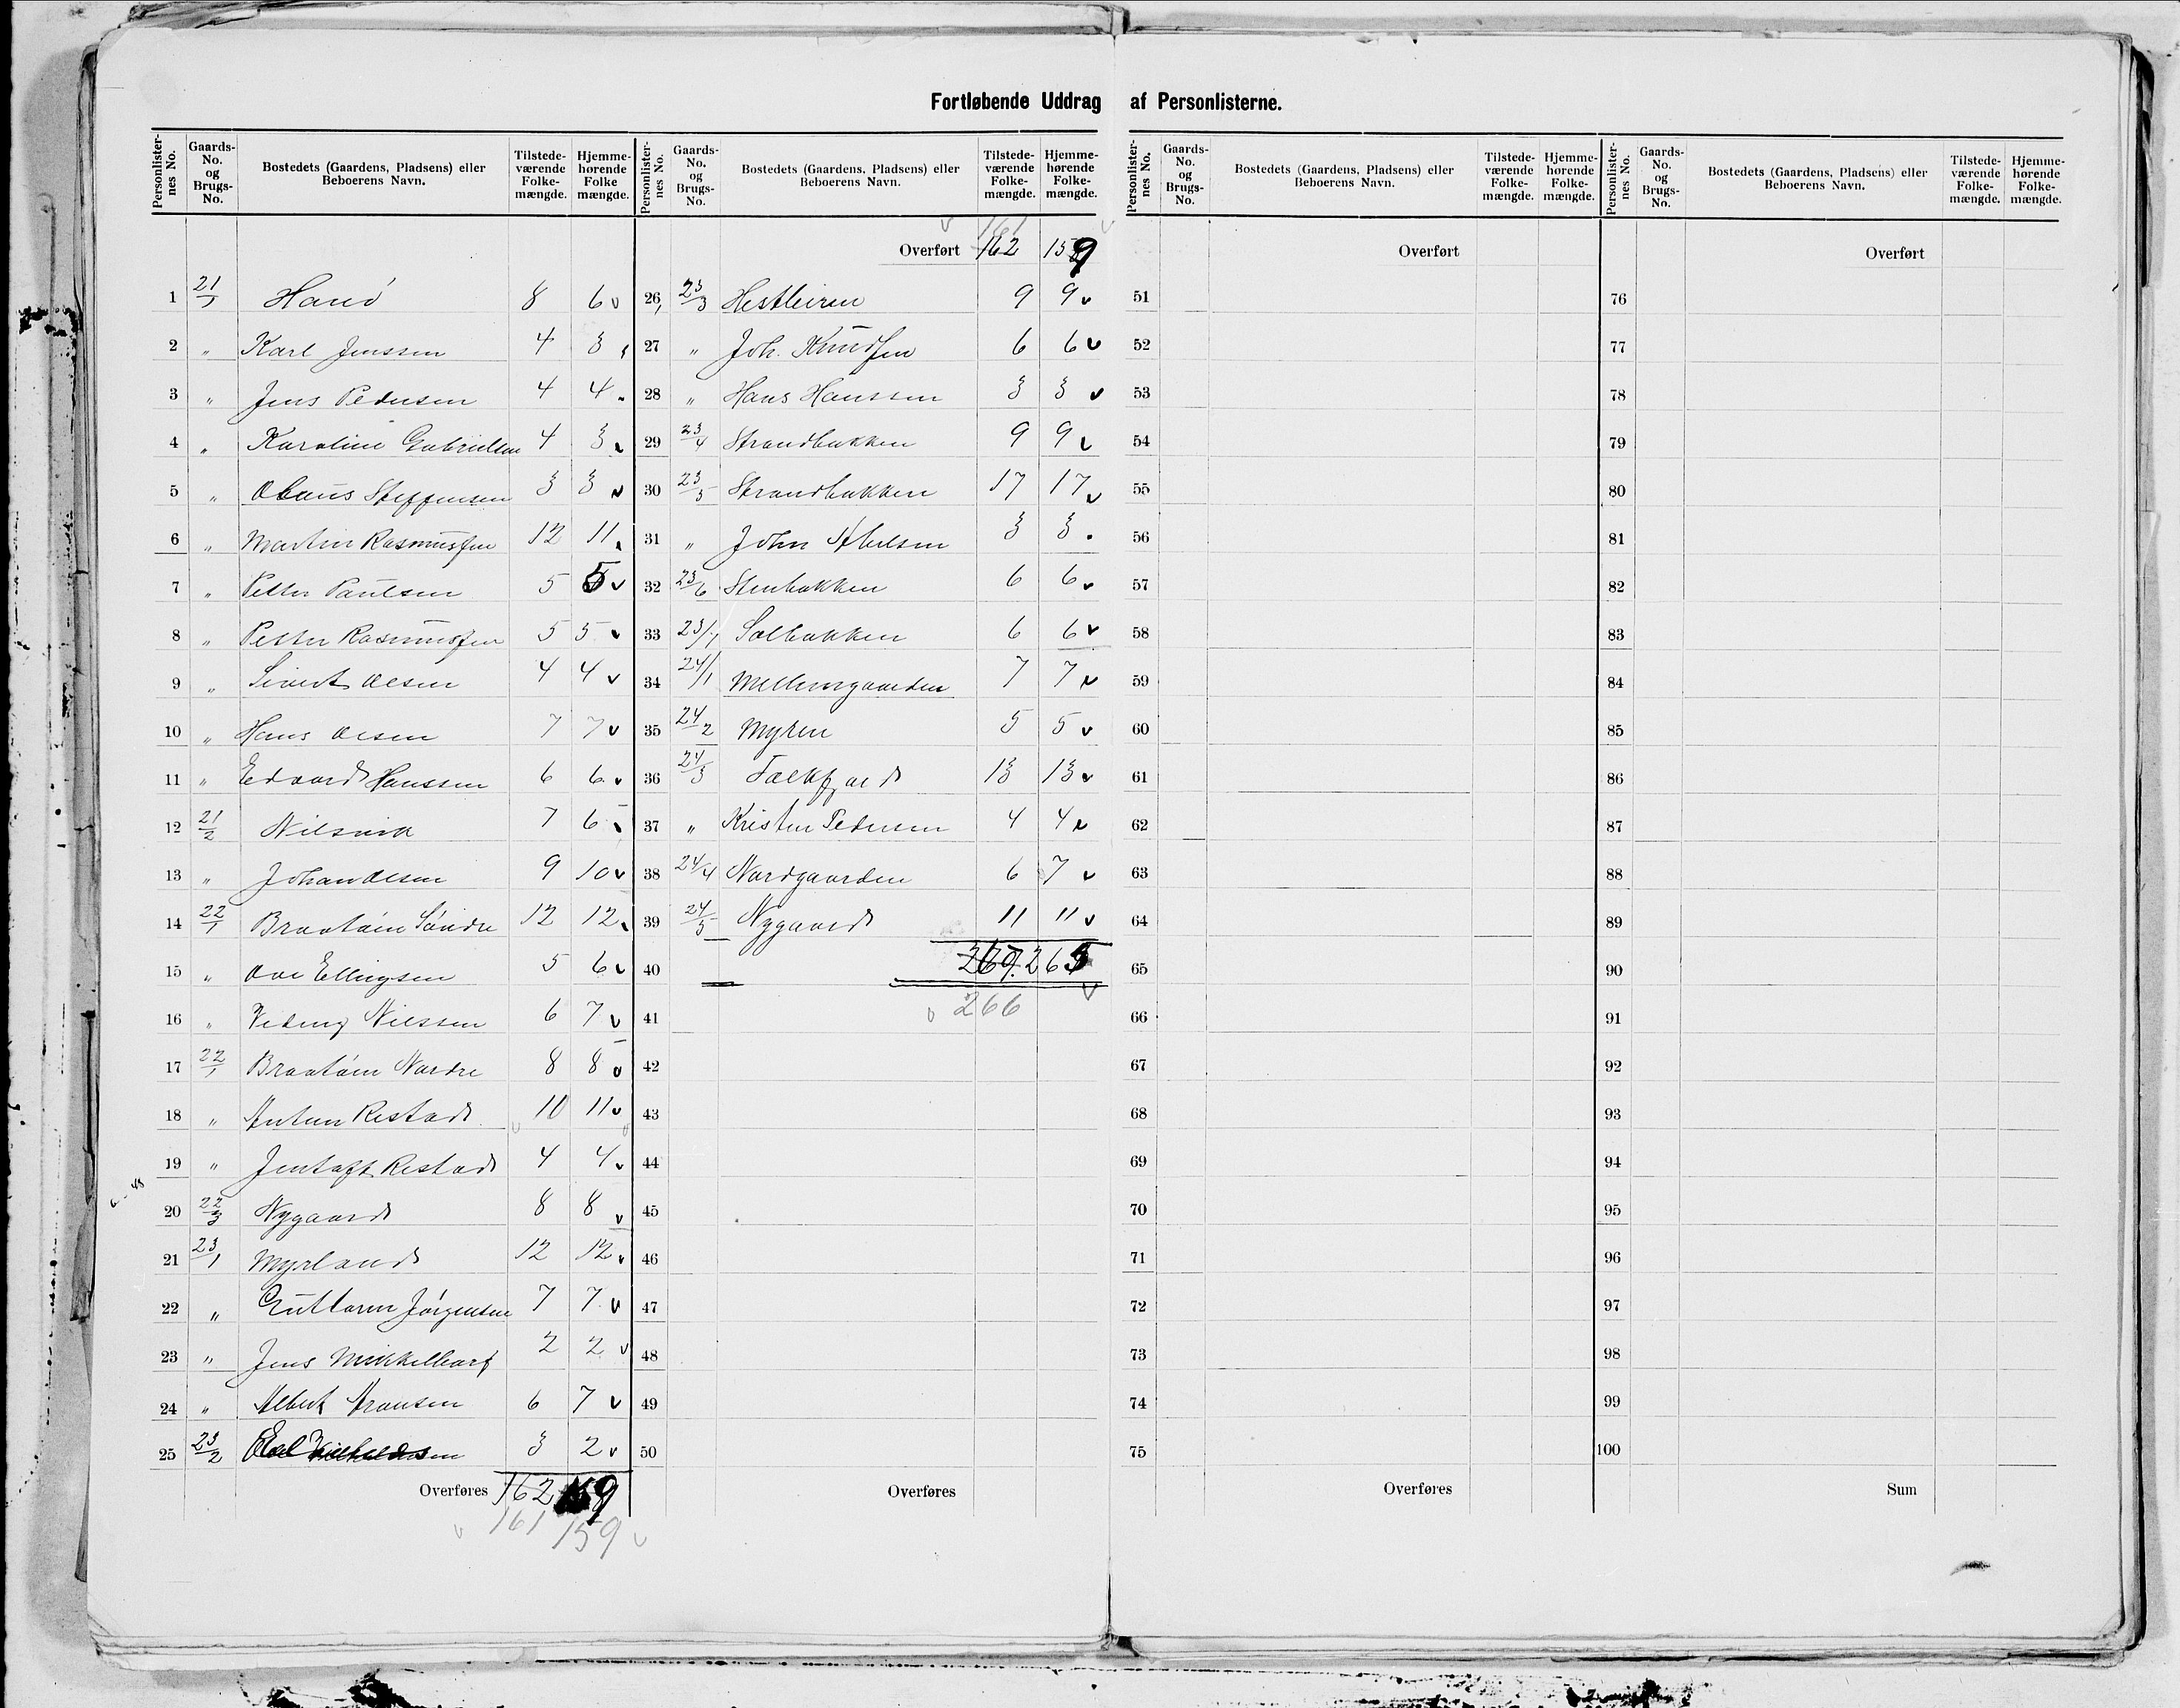 Fortløbende Uddrag af Personlisterne.
Personlister-nes No. | Gaards-No. og Brugs-No. | Bostedets (Gaardens, Pladsens) eller Beboerens Navn. | Tilstede-værende Folke-mængde. | Hjemme-hørende Folke mængde.
1 21/1 Hanø 8 6
2 " Karl Jenssen 4 3
3 " Jens Pedersen 4 4
4 " Karoline Gabrielsen 4 3
5 " Olaus Steffensen 3 3
6 " Martin Rasmussen 12 11
7 " Petter Paulsen 5 5
8 " Petter Rasmussen 5 5
9 " Sivert Olsen 4 4
10 " Hans Olsen 7 7
11 " Edvard Hanssen 6 6
12 21/2 Nilsvik 7 6
13 " Johan Olsen 9 10
14 22/1 Brottøin Søndre 12 12
15 " Ove Ellingsen 5 6
16 " Nilssen 6 7
17 22/1 Brottøin Nordre 8 8
18 " Anton Restad 10 11
19 " Jentoft Restad 4 4
20 22/3 Nygaard 8 8
21 23/1 Myrland 12 12
22 " Guttorm Jørgensen 7 7
23 " Jens Mikkelborg 2 2
24 " Albert Fransen 6 7
25 23/2 3 2
Overføres 162 159
161 159
Personlister-nes No. | Gaards-No. og Brugs-No. | Bostedets (Gaardens, Pladsens) eller Beboerens Navn. | Tilstede-værende Folke-mængde. | Hjemme-hørende Folke-mængde.
161
Overført 162 159
26 23/3 Hestleiren 9 9
27 " Joh. Knudsen 6 6
28 " Hans Hanssen 3 3
29 23/4 Strandbakken 9 9
30 23/5 Strandbakken 17 17
31 " John Abelsen 3 3
32 23/6 Stenbakken 6 6
33 23/7 Solbakken 6 6
34 24/1 Mellemgaarden 7 7
35 24/2 Myren 5 5
36 24/3 Falkfjord 13 13
37 " Kristen Pedersen 4 4
38 24/4 Nordgaarden 6 7
39 24/5 Nygaard 11 11
40 267. 265
41 266
42
43
44
45
46
47
48
49
50
Overføres
Personlister-nes No. | Gaards-No. og Brugs-No. | Bostedets (Gaardens, Pladsens) eller Beboerens Navn. | Tilstede-værende Folke-mængde. | Hjemme-hørende Folke-mængde.
Overført
51
52
53
54
55
56
57
58
59
60
61
62
63
64
65
66
67
68
69
70
71
72
73
74
75
Overføres
Personlister-nes No. | Gaards-No. og Brugs-No. | Bostedets (Gaardens, Pladsens) eller Beboerens Navn. | Tilstede-værende Folke-mængde. | Hjemme-hørende Folke-mængde.
Overført
76
77
78
79
80
81
82
83
84
85
86
87
88
89
90
91
92
93
94
95
96
97
98
99
100
Sum